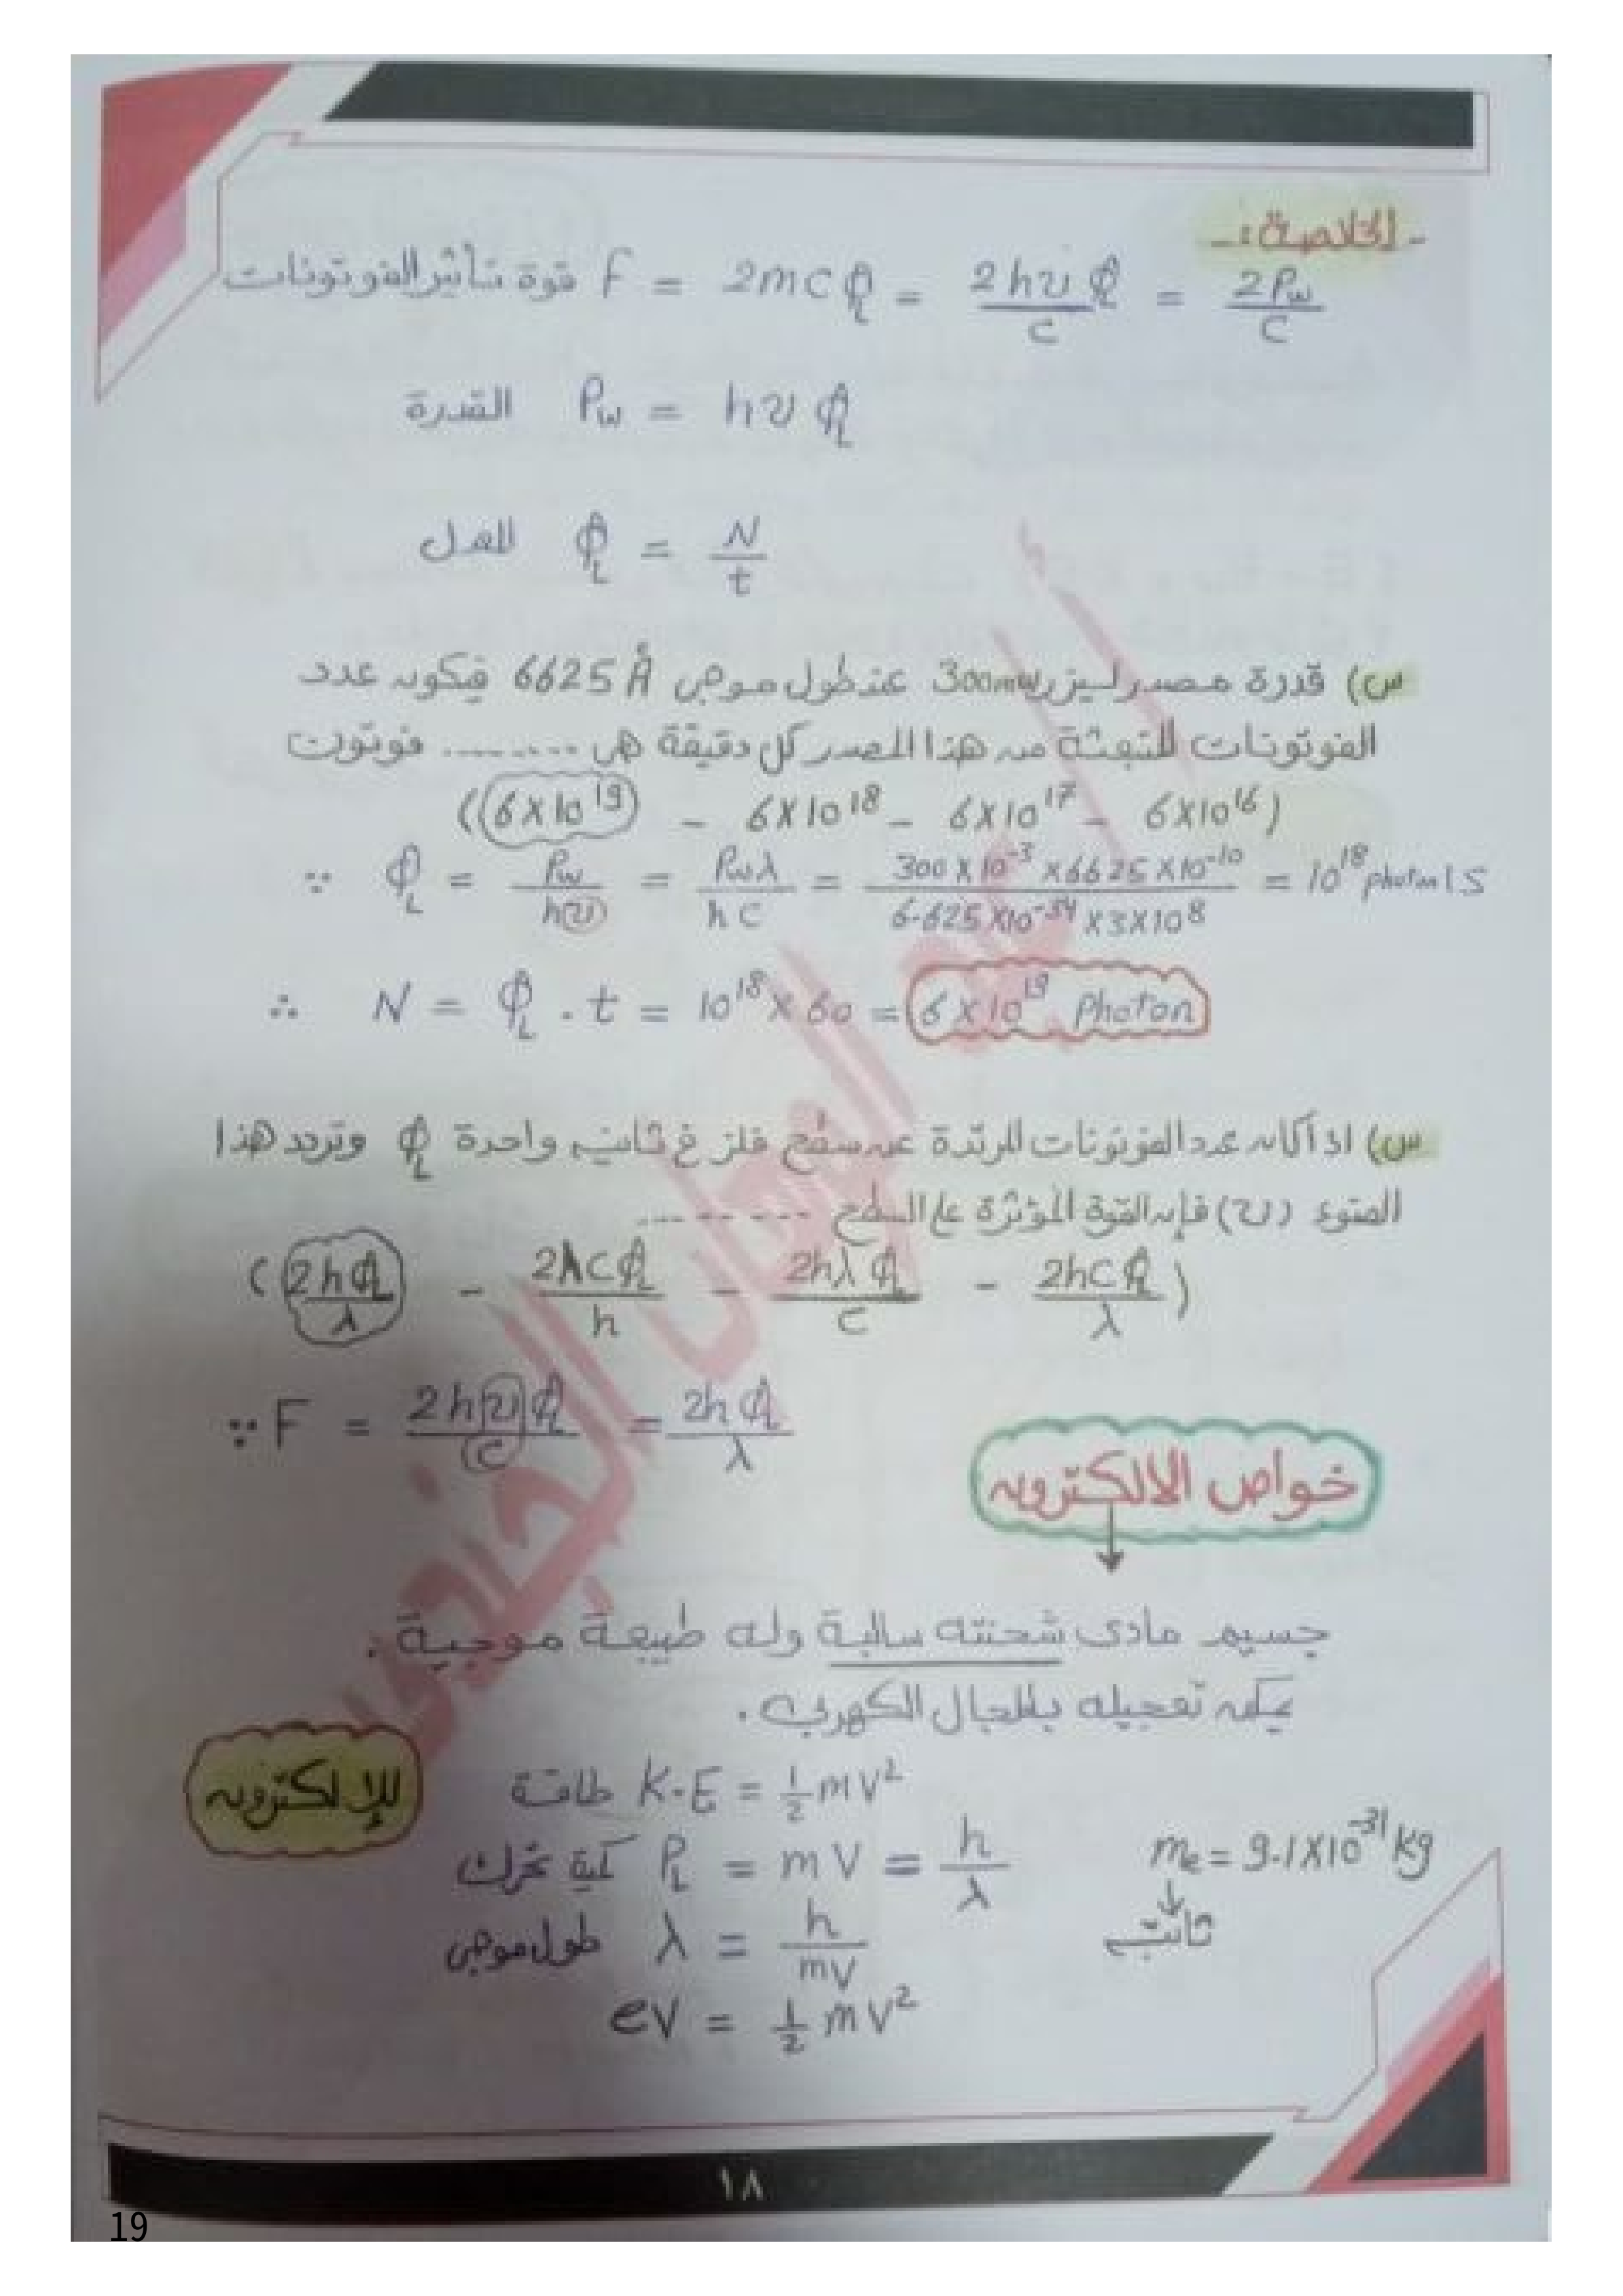 - الخلاصة :-
قوة تأثير الفوتونات F = 2mcϕL = 2hυϕL / c = 2Pw / c
القدرة Pw = hυ ϕL
المعدل ϕL = N / t
س) قدرة مصدر ليزر 300mw عند طول موجى 6625 Å فيكون عدد
الفوتونات المنبعثة من هذا المصدر كل دقيقة هى ........ فوتون
(6X10^19 - 6X10^18 - 6X10^17 - 6X10^16)
∵ ϕL = Pw / hυ = Pwλ / hc = 300X10^-3 X6625X10^-10 / 6.625X10^-34 X3X10^8 = 10^18 photon/S
∴ N = ϕL . t = 10^18 X 60 = 6X10^19 Photon
س) اذا كان عدد الفوتونات المرتدة عن سطح فلز فى ثانية واحدة ϕL وتردد هذا
الضوء (υ) فإن القوة المؤثرة على السطح ---------
(2hϕL / λ - 2λCϕL / h - 2hλϕL / C - 2hCϕL / λ)
∵ F = 2hυϕL / C = 2hϕL / λ
خواص الالكترون
جسيم مادى شحنته سالبة وله طبيعة موجية .
يمكن تعجيله بالمجال الكهربى .
للإلكترون
طاقة K.E = 1/2 mV²
كمية تحرك PL = mV = h / λ
me = 9.1X10^-31 kg
ثابت
طول موجى λ = h / mV
eV = 1/2 mV²
١٨
19